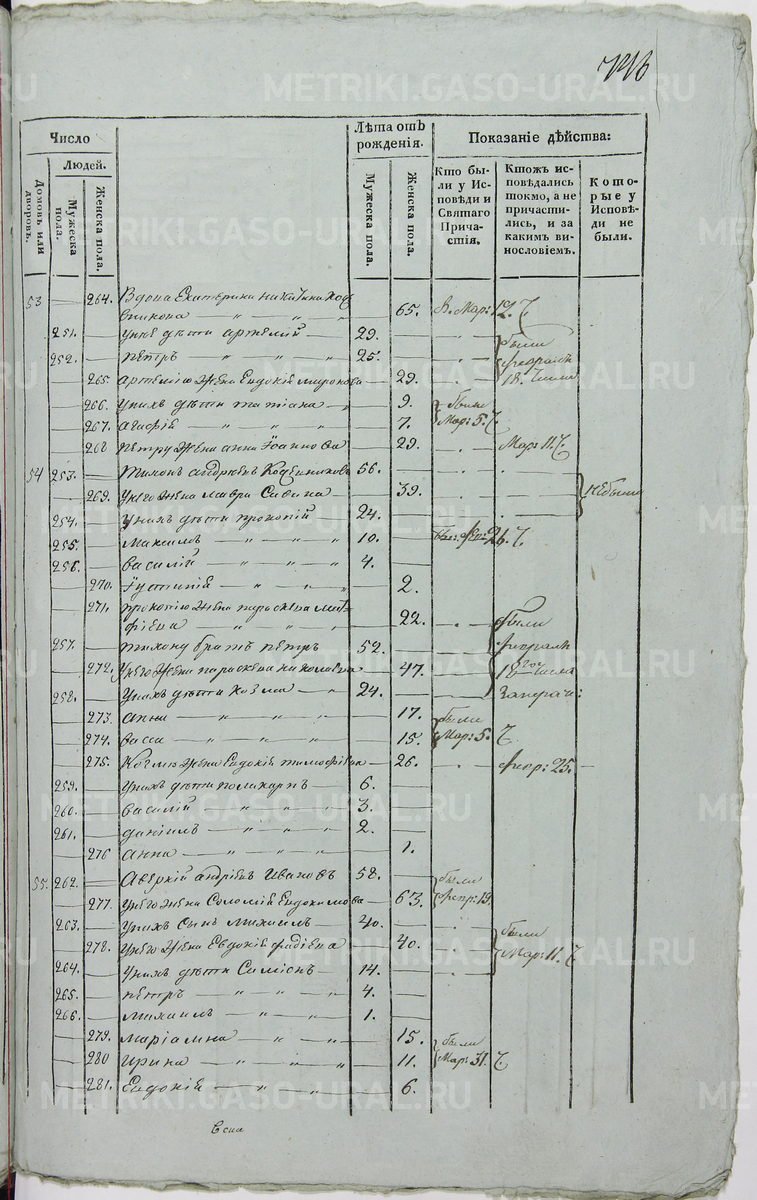 METRIKI.GASO-URAL.RU
Число
Людей.
Домовъ или дворовъ.
Мужеска пола.
Женска пола.
Лѣта отъ рожденія.
Мужеска пола.
Женска пола.
Показаніе дѣйства:
Кто были у Исповѣди и Святаго Причастія.
Ктожъ исповѣдались токмо, а не причастились, и за какимъ винословіемъ.
Которые у Исповѣди не были.
53 264. Вдова Екатерина Никитина
65. Мар: 12.
251. У нее дѣти Артемій 29. были
252. Петръ 25. февраля
265. Артемію жена Евдокія Миронова 29. 18. числа
266. У нихъ дѣти Татіана 9. были
267. Агафія 7. Мар: 5.
268 Петру жена Анна Іоаннова 29. Мар: 11.
54 253. Тихонъ Андреевъ 56.
269. У него жена Мавра Савина 39. не были
254. У нихъ дѣти Прокопій 24.
255. Максимъ 10. 26.
256. Василій 4.
270. Іустинія 2.
271. Прокопію жена Параскева
22. были
257. Тихону братъ Петръ 52. февраля
272. У него жена Параскева Николаева 47. 18 числа
258. У нихъ дѣти Козма 24.
273. Анна 17. были
274. Васса 15. Мар: 5.
275. Козмѣ жена Евдокія Тимофіева 26. февр: 25.
259. У нихъ дѣти Поликарпъ 6.
260. Василій 3.
261. Даніилъ 2.
276 Анна 1.
55. 262. Аверкій Андреевъ Ивановъ 58. были
277. У него жена Соломія Евдокимова 63. февр: 19.
263. У нихъ сынъ Михаилъ 40.
278. У него жена Евдокія Фадіева 40. были Мар: 11.
264. У нихъ дѣти Симіонъ 14.
265. Петръ 4.
266. Михаилъ 1.
279. Маріамна 15. были
280 Ирина 11. Мар: 31.
281. Евдокія 6.